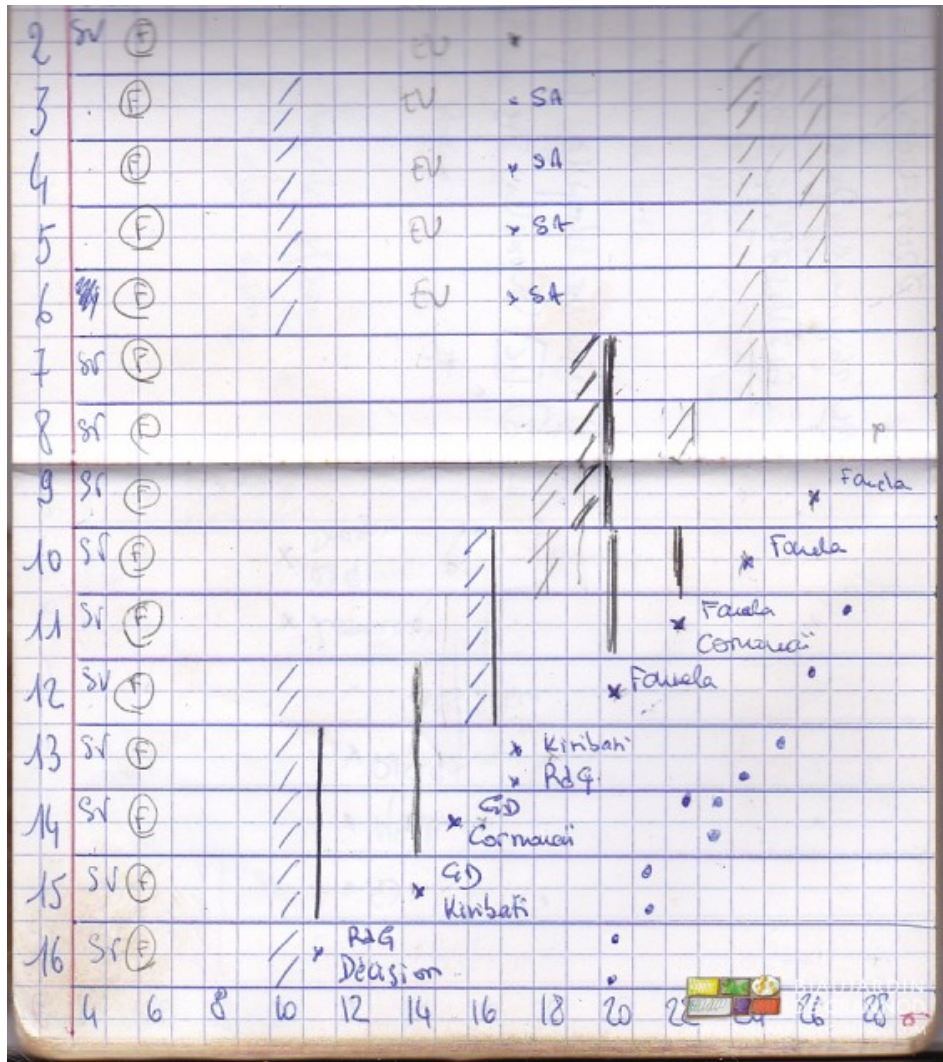 2 SV F EU
3 F EU SA
4 F EU SA
5 F EU SA
6 F EU SA
7 SV F
8 SV F
9 SV F Fouela
10 SV F Fouela
11 SV F Fouela
Cornouaï
12 SV F Fouela
13 SV F Kiribati
RdG
14 SV F GD
Cornouaï
15 SV F GD
Kiribati
16 SV F RdG
Décision
4 6 8 10 12 14 16 18 20 22 24 26 28